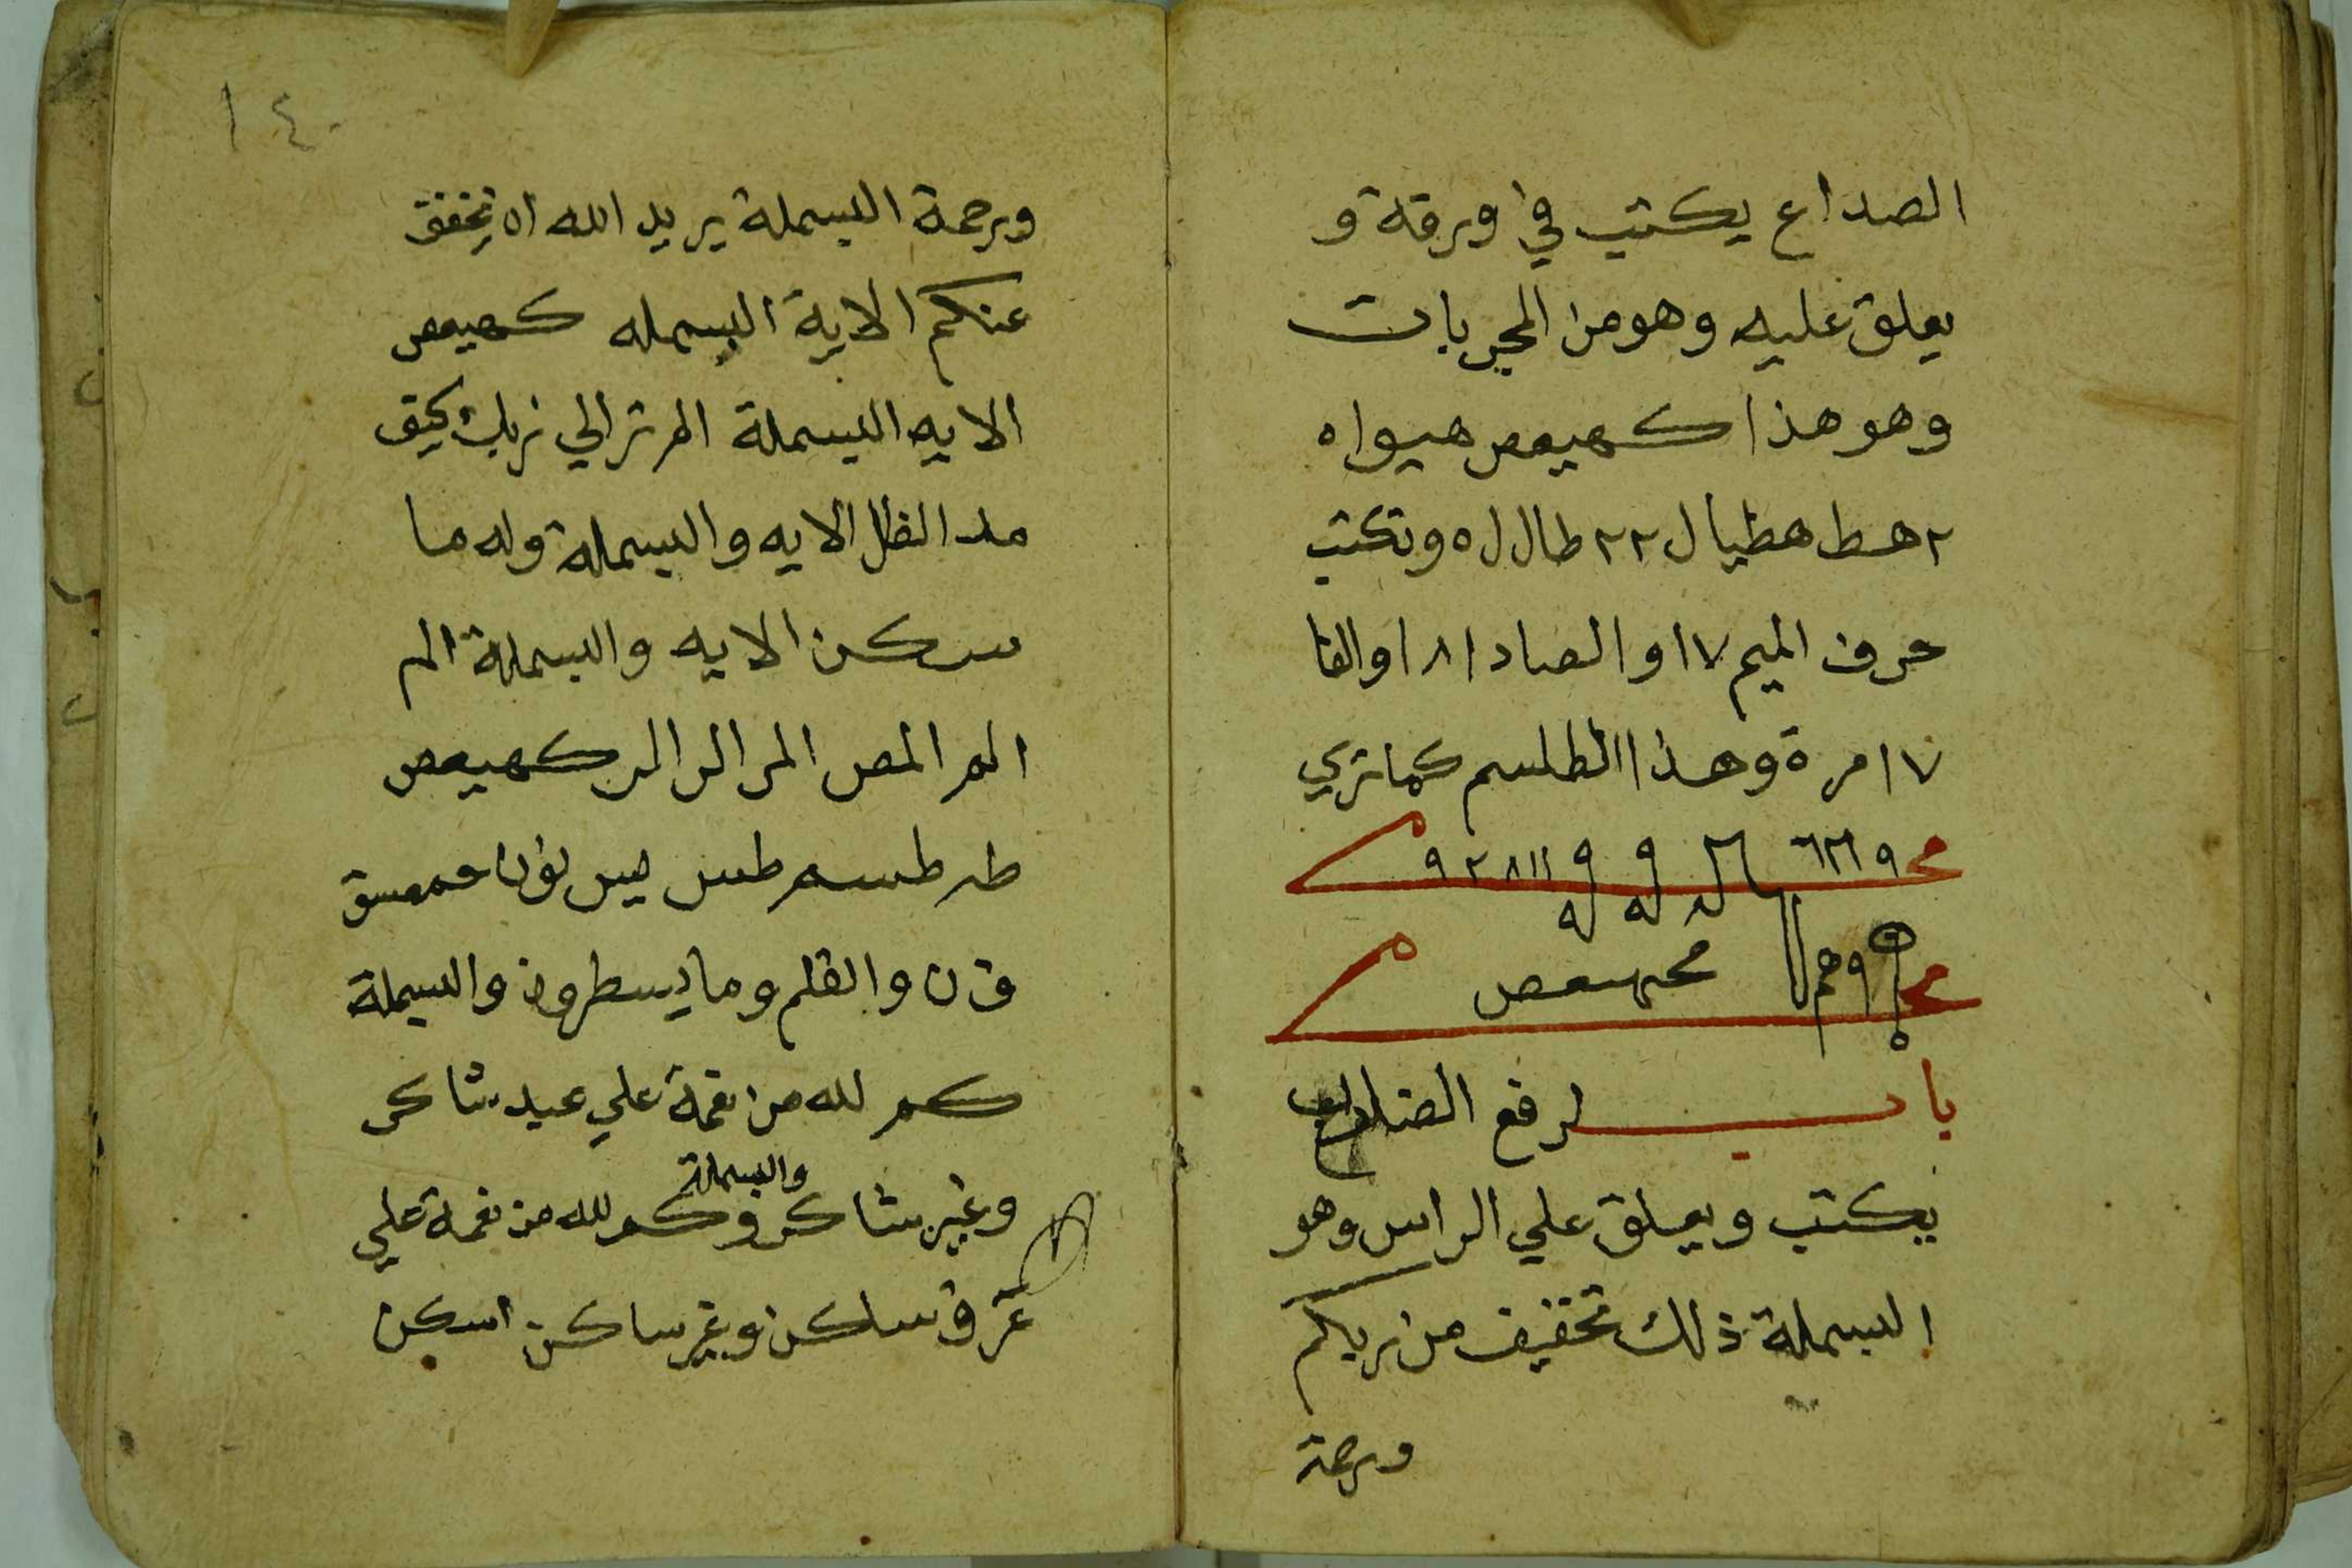 الصداع يكتب في ورقة و
يعلق عليه وهو من المجربات
وهو هذا كهيعص هيواه
٢ هط هطيال ٢٢ طال ل ه وتكتب
حرف الميم ١٧ والصاد ١٨ والفا
١٧ مرة وهذا الطلسم كما تري
باب لرفع
يكتب ويعلق علي الراس وهو
البسملة ذلك تخفيف من ربكم
ورحمة
١٤٠
ورحمة البسملة يريد الله ان يخفف
عنكم الاية البسمله كهيعص
الايه البسملة الم تر الي ربك كيف
مد الظل الايه والبسملة وله ما
سكن الايه والبسملة الم
الم المص المر الر الر كهيعص
طه طسم طس يس نون حمعسق
ق ن والقلم وما يسطرون والبسملة
كم لله من نعمة علي عبد شاكر
والبسملة
وغير شاكر وكم لله من نعمة علي
عرق ساكن وغير ساكن اسكن